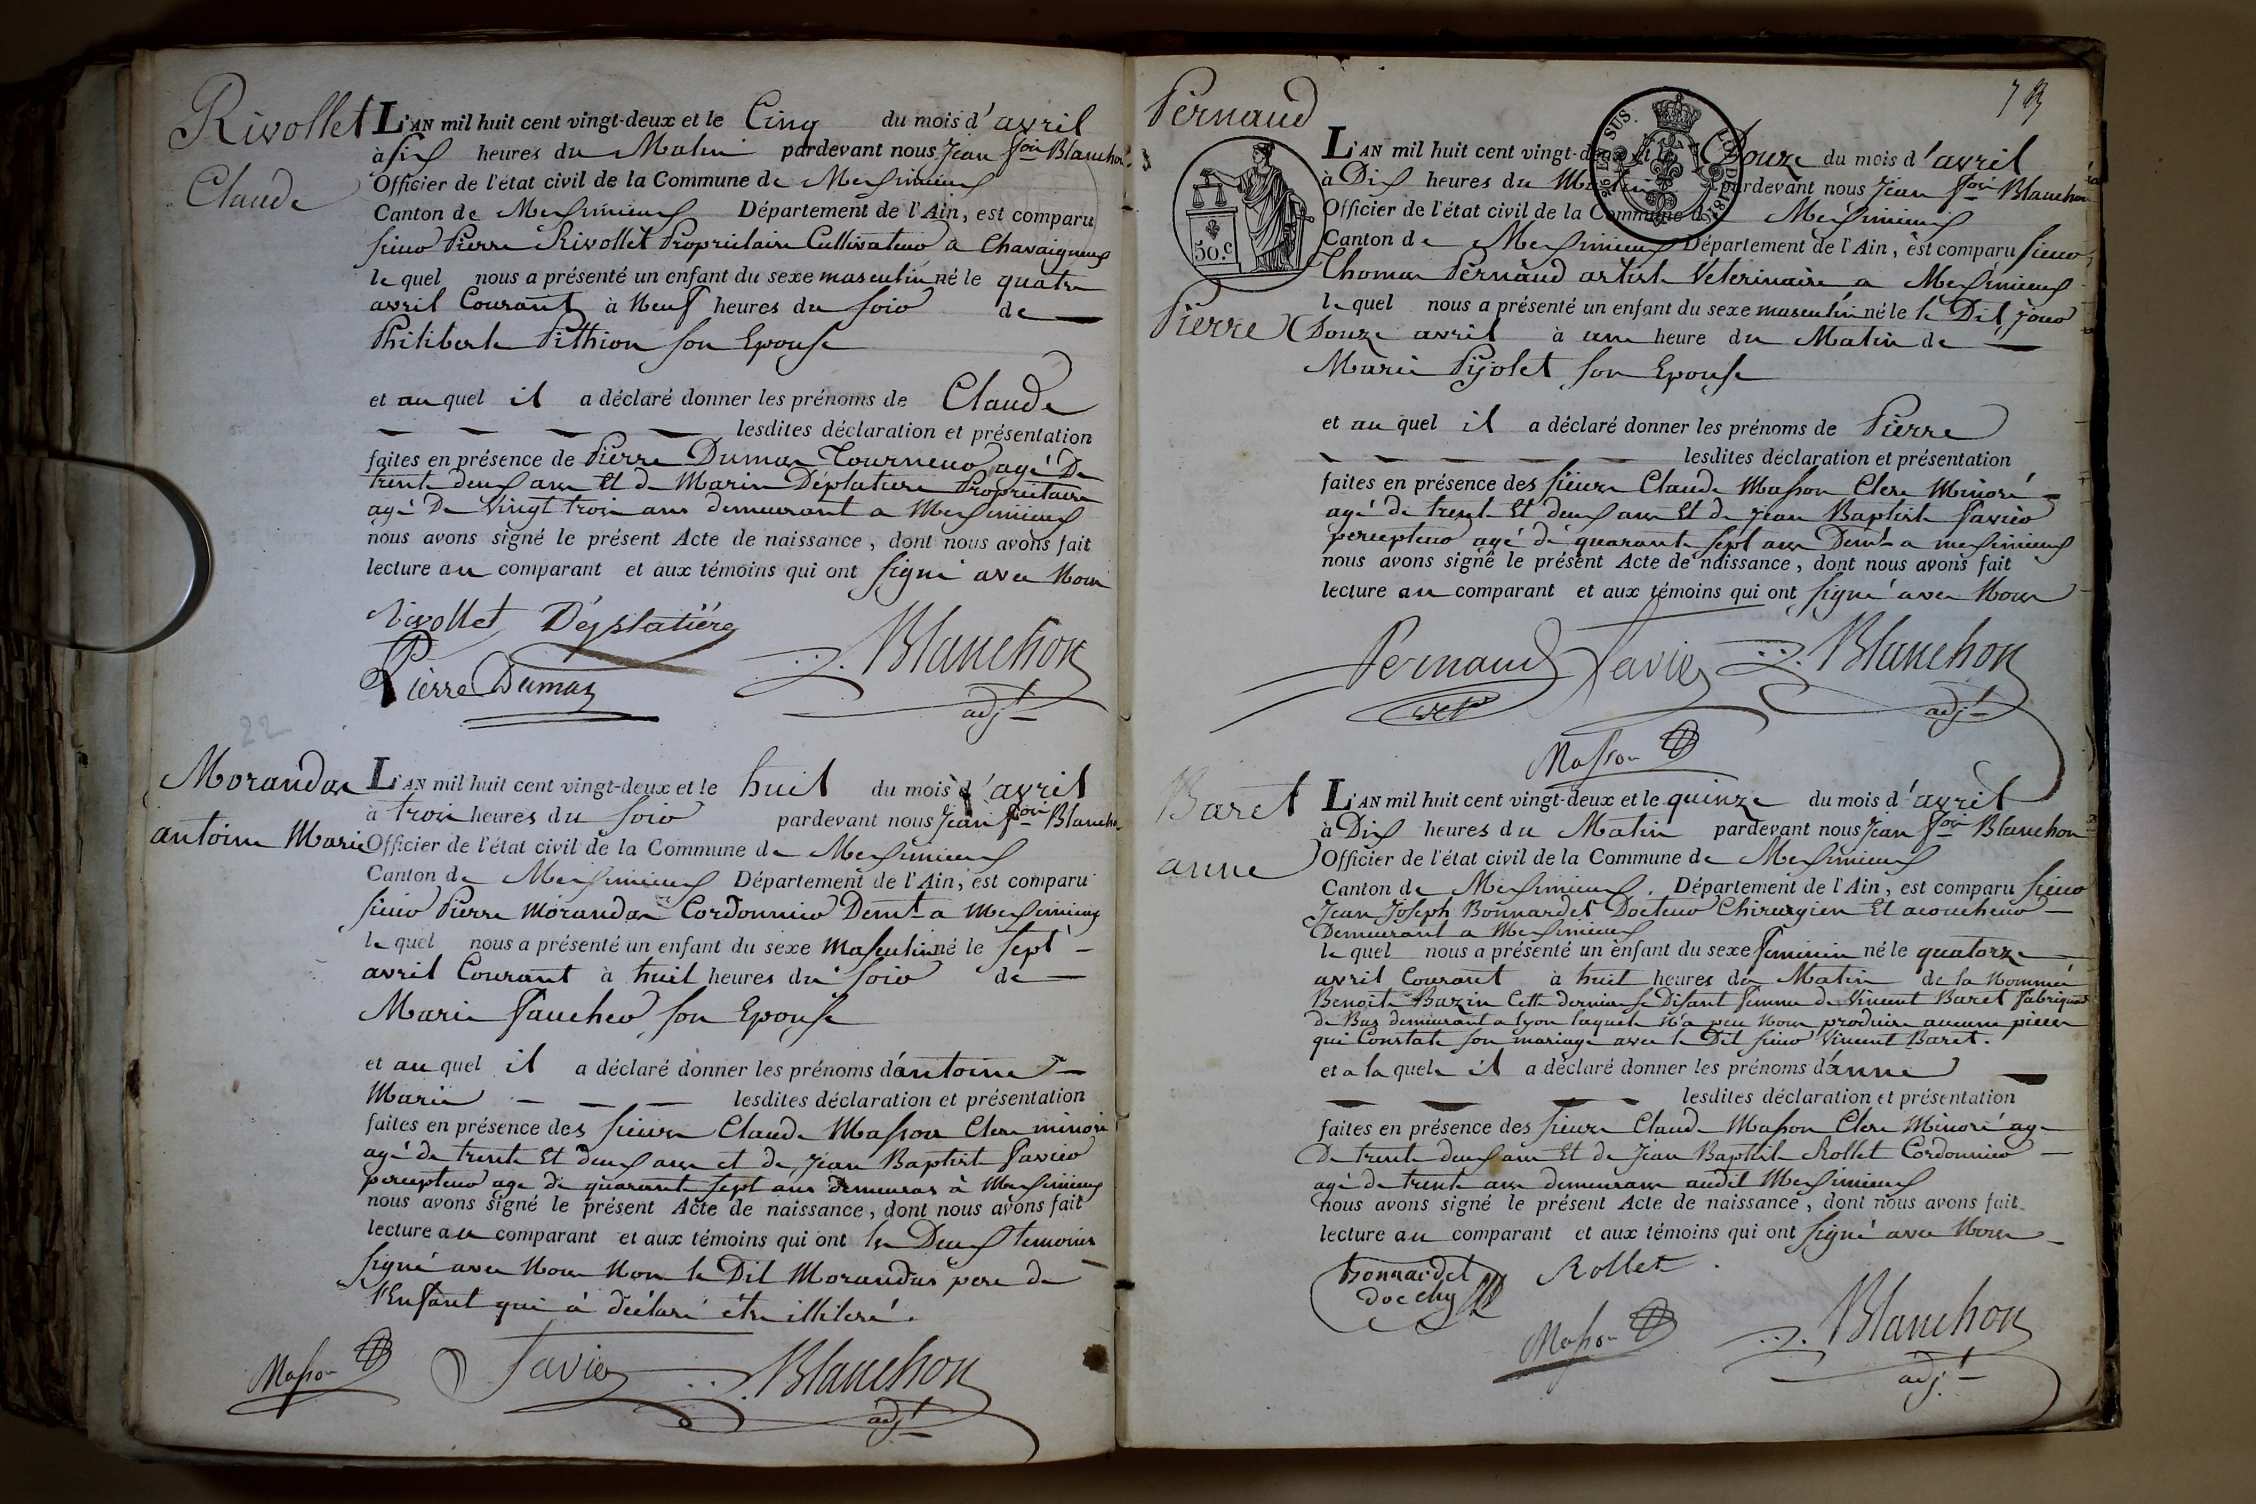 Rivollet
Claude
L'AN mil huit cent vingt-deux et le Cinq du mois d'avril
à six heures du Matin pardevant nous Jean fois Blanchon
Officier de l'état civil de la Commune de Meximieux
Canton de Meximieux Département de l'Ain, est comparu
sieur Pierre Rivollet Propriétaire Cultivateur a Chavaigneux
le quel nous a présenté un enfant du sexe masculin né le quatre
avril Courant à Neuf heures du soir de
Philiberte Pithion son Epouse
et au quel il a déclaré donner les prénoms de Claude
lesdites déclaration et présentation
faites en présence de Pierre Dumas Tourneur agé De
trente deux ans Et de Marin Déplatière Propriétaire
agé De Vingt trois ans demeurant a Meximieux
nous avons signé le présent Acte de naissance, dont nous avons fait
lecture au comparant et aux témoins qui ont signé avec Nous
Rivollet Déplatière
Pierre Dumas Blanchon
adjt
22
Morandas
antoine Marie
L'AN mil huit cent vingt-deux et le huit du mois d'avril
à trois heures du soir pardevant nous Jean fois Blanchon
Officier de l'état civil de la Commune de Meximieux
Canton de Meximieux Département de l'Ain, est comparu
sieur Pierre Morandas Cordonnier Demt a Meximieux
le quel nous a présenté un enfant du sexe Masculin né le sept
avril Courant à huit heures du soir de
Marie Faucher son Epouse
et au quel il a déclaré donner les prénoms d'antoine
Marie lesdites déclaration et présentation
faites en présence des sieurs Claude Masson Clerc minoré
agé de trente Et deux ans et de Jean Baptiste Favier
percepteur age de quarante sept ans demeuras à Meximieux
nous avons signé le présent Acte de naissance, dont nous avons fait
lecture au comparant et aux témoins qui ont les Deux temoins
signé avec Nous Non le Dit Morandas pere de
l'Enfant qui à déclaré être illiteré.
Masson Favier Blanchon
adjt
73
Pernaud
Pierre
50.c
96 EN SUS.
LOI DE 1816
L'AN mil huit cent vingt-deux et le Douze du mois d'avril
à Dix heures du Matin pardevant nous Jean fois Blanchon
Officier de l'état civil de la Commune de Meximieux
Canton de Meximieux Département de l'Ain, est comparu sieur
Thomas Pernaud artiste Veterinaire a Meximieux
le quel nous a présenté un enfant du sexe masculin né le le Dit jour
Douze avril à une heure du Matin de
Marie Pijolet son Epouse
et au quel il a déclaré donner les prénoms de Pierre
lesdites déclaration et présentation
faites en présence des sieurs Claude Masson Clerc Minoré
agé de trente Et deux ans Et de Jean Baptiste Favier
percepteur agé de quarante sept ans Demt a meximieux
nous avons signé le présent Acte de naissance, dont nous avons fait
lecture au comparant et aux témoins qui ont signé avec Nous
Pernaud Favier Blanchon
vetr adjt
Masson
Baret
anne
L'AN mil huit cent vingt-deux et le quinze du mois d'avril
à Dix heures du Matin pardevant nous Jean fois Blanchon
Officier de l'état civil de la Commune de Meximieux
Canton de Meximieux. Département de l'Ain, est comparu sieur
Jean Joseph Bonnardet Docteur Chirurgien Et acoucheur
Demeurant a Meximieux
le quel nous a présenté un enfant du sexe feminin né le quatorze
avril Courant à huit heures du Matin de la Nommée
Benoite Bazin Cette derniere se Disant femme de Vincent Baret fabriquant
de Bas demeurant a lyon laquele N'a peu Nous produire aucune pieces
qui Constate son mariage avec le Dit sieur Vincent Baret.
et a la quele il a déclaré donner les prénoms d'anne
lesdites déclaration et présentation
faites en présence des sieurs Claude Masson Clerc Minoré age
De trente deux ans Et de Jean Baptiste Rollet Cordonnier
agé de trente ans demeurans audit Meximieux
nous avons signé le présent Acte de naissance, dont nous avons fait
lecture au comparant et aux témoins qui ont signé avec Nous
Bonnardet Rollet
doc chy
Masson Blanchon
adjt